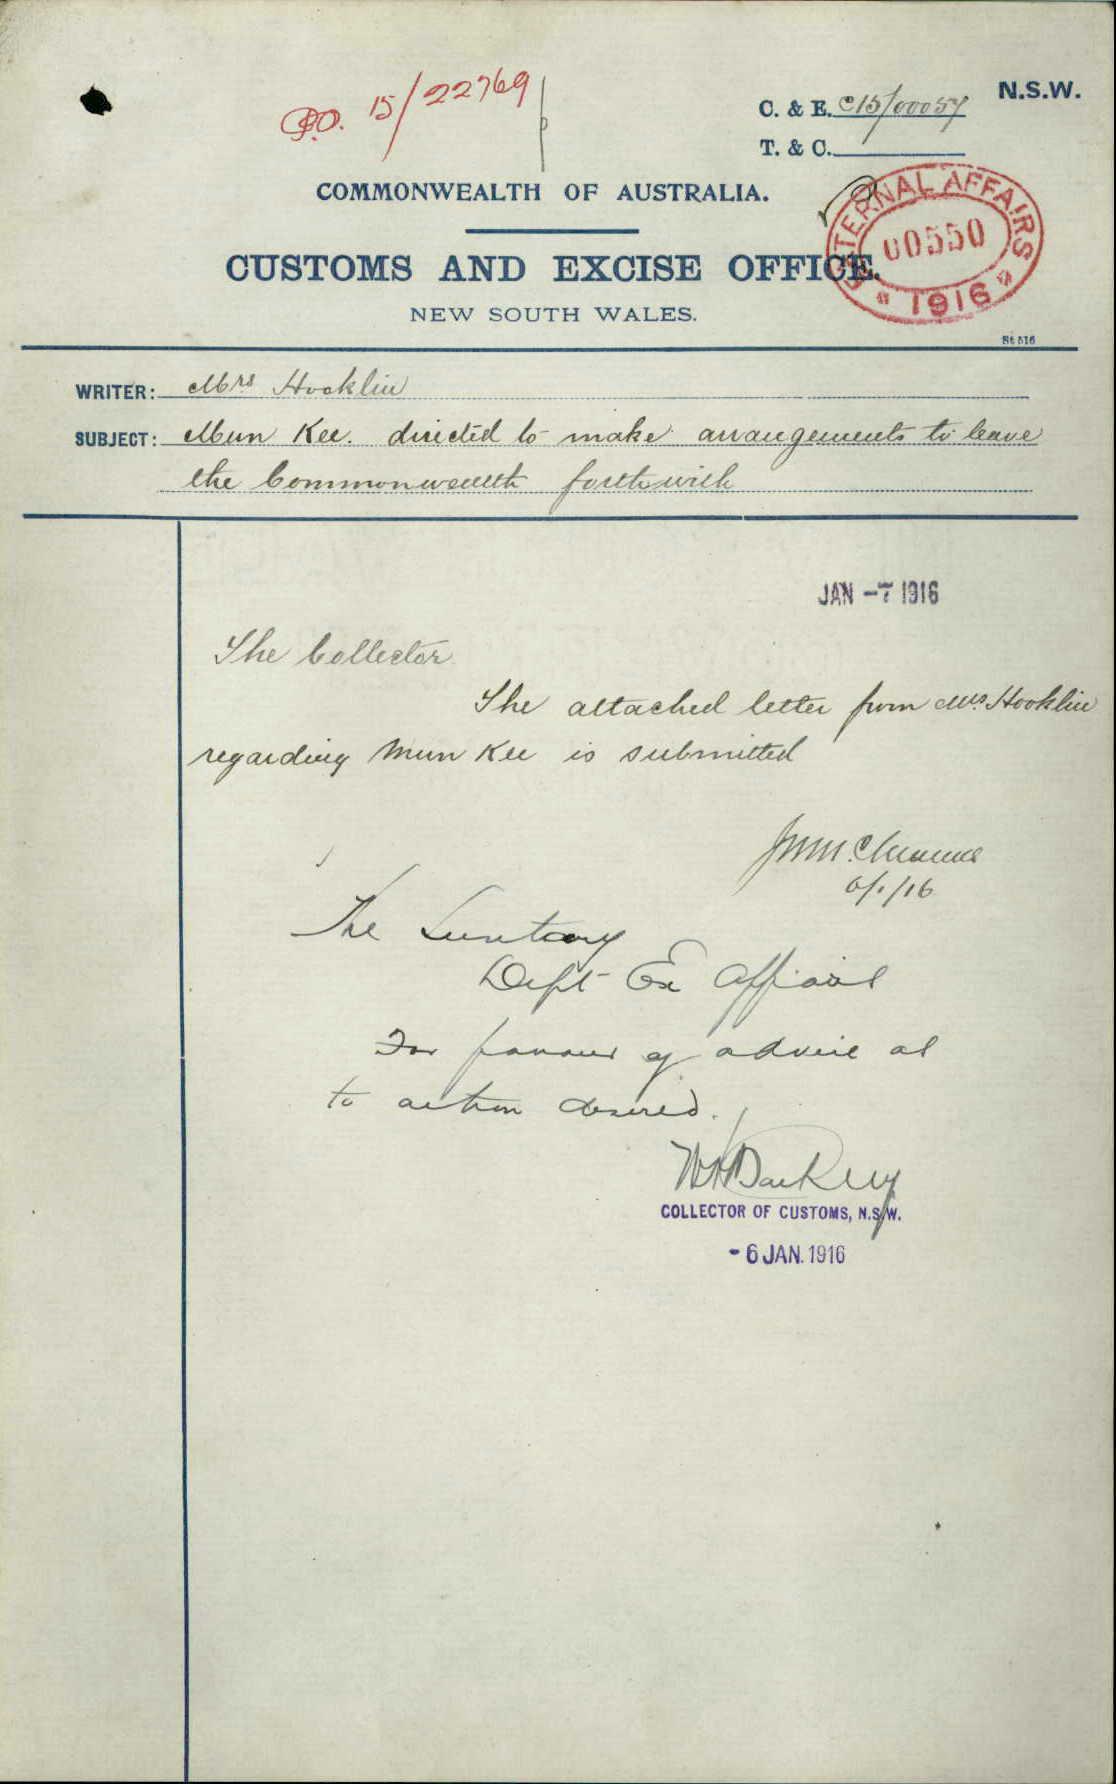 P.O. 15/22769
N.S.W.
C. & E. C15/00057
T. & C.
COMMONWEALTH OF AUSTRALIA.
EXTERNAL AFFAIRS
00550
1916
CUSTOMS AND EXCISE OFFICE.
NEW SOUTH WALES.
St 516
WRITER: Mrs Hooklin
SUBJECT: Mun Kee. directed to make arrangements to leave
the Commonwealth forthwith
JAN -7 1916
The Collector
The attached letter from Mrs. Hooklin
regarding Mun Kee is submitted
6/1/16
The Secretary
Dept Ex Affairs
For favour of advice as
to action desired.
W H Barkley
COLLECTOR OF CUSTOMS, N.S.W.
- 6 JAN. 1916